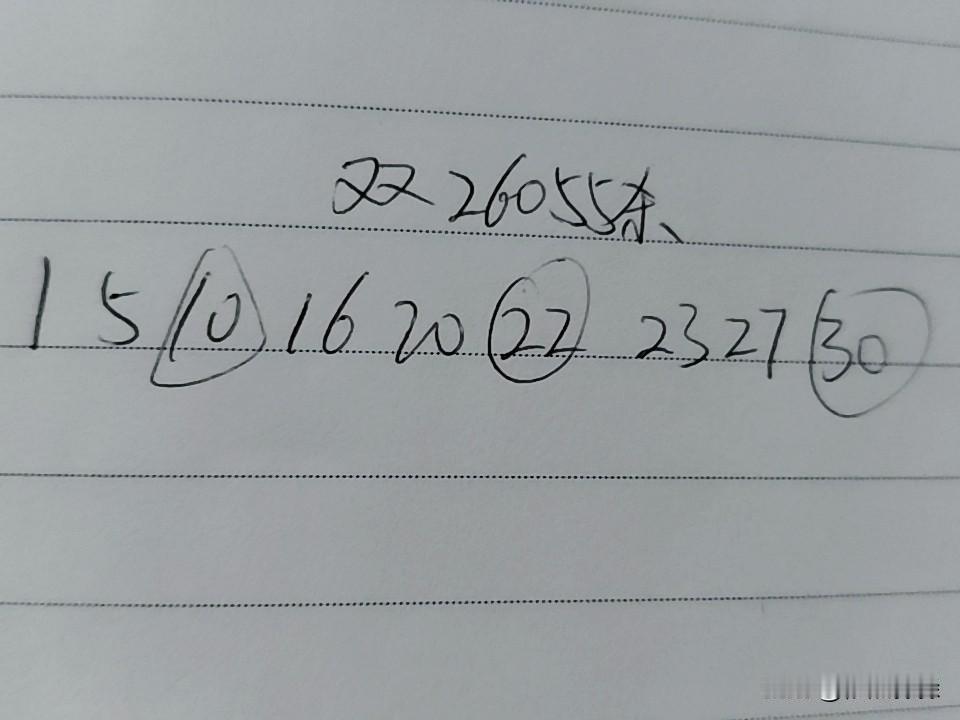 双26055杀
1 5 10 16 20 22 23 27 30